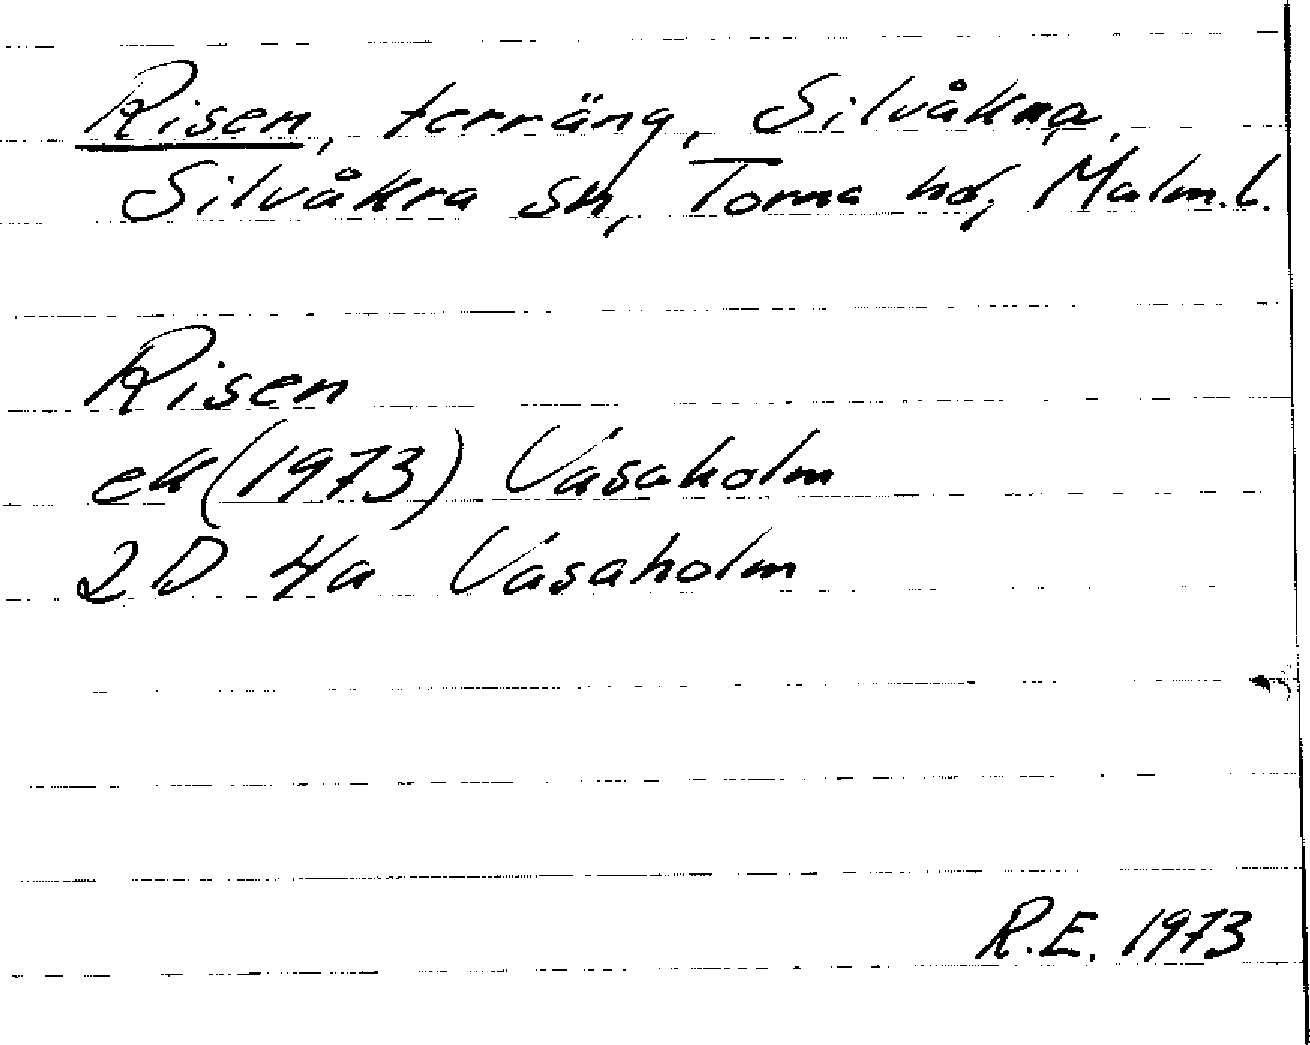 Risen, terräng, Silvåkra,
Silvåkra sn, Torna hd, Malm. l.
Risen
ek (1973) Vasaholm
2D 4a Vasaholm
R.E. 1973